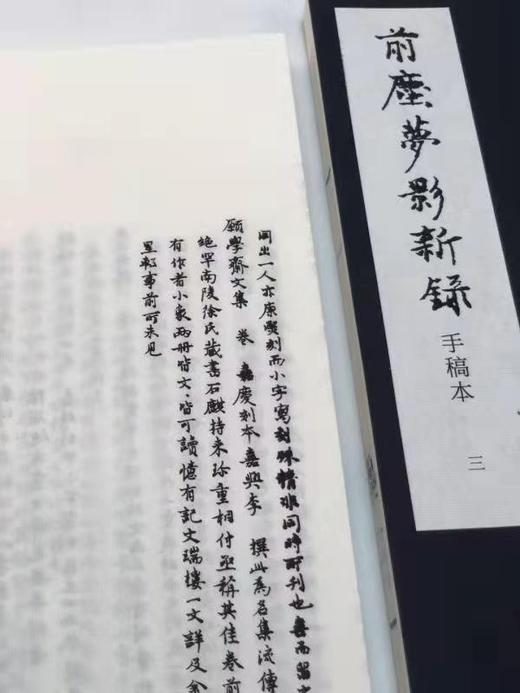 前塵夢影新錄
手稿本
三
同出一人亦康熙刻而小字寫刻殊精非同時所刊也喜而留
願學齋文集 卷 嘉慶刻本嘉興李 撰此為名集流傳
絕罕南陵徐氏藏書石麒持來珍重相付亟稱其佳卷前
有作者小象兩冊皆文皆可讀憶有記文瑞樓一文詳及金
星軺事前所未見